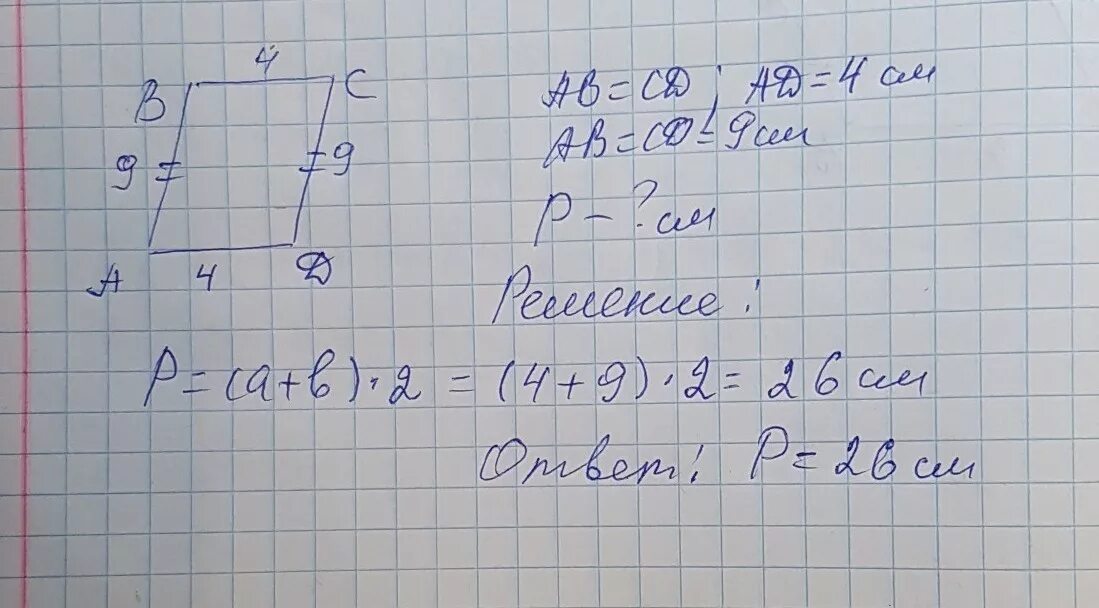 4
B C
AB = CD; AD = 4 см
9 9
AB = CD = 9 см
P - ? см
A 4 D
Решение:
P = (a + b) · 2 = (4 + 9) · 2 = 26 см
Ответ: P = 26 см